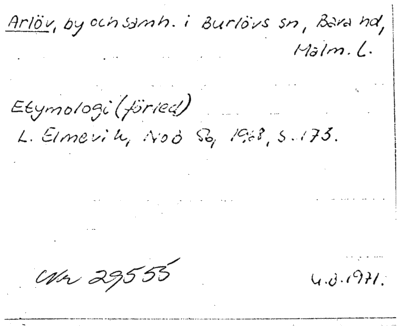 Arlöv, by och samh. i Burlövs sn, Bara hd,
Malm. L.
Etymologi (förled)
L. Elmevik, NoB 56, 1968, s. 173.
Nr 29555
u.å. 1971.